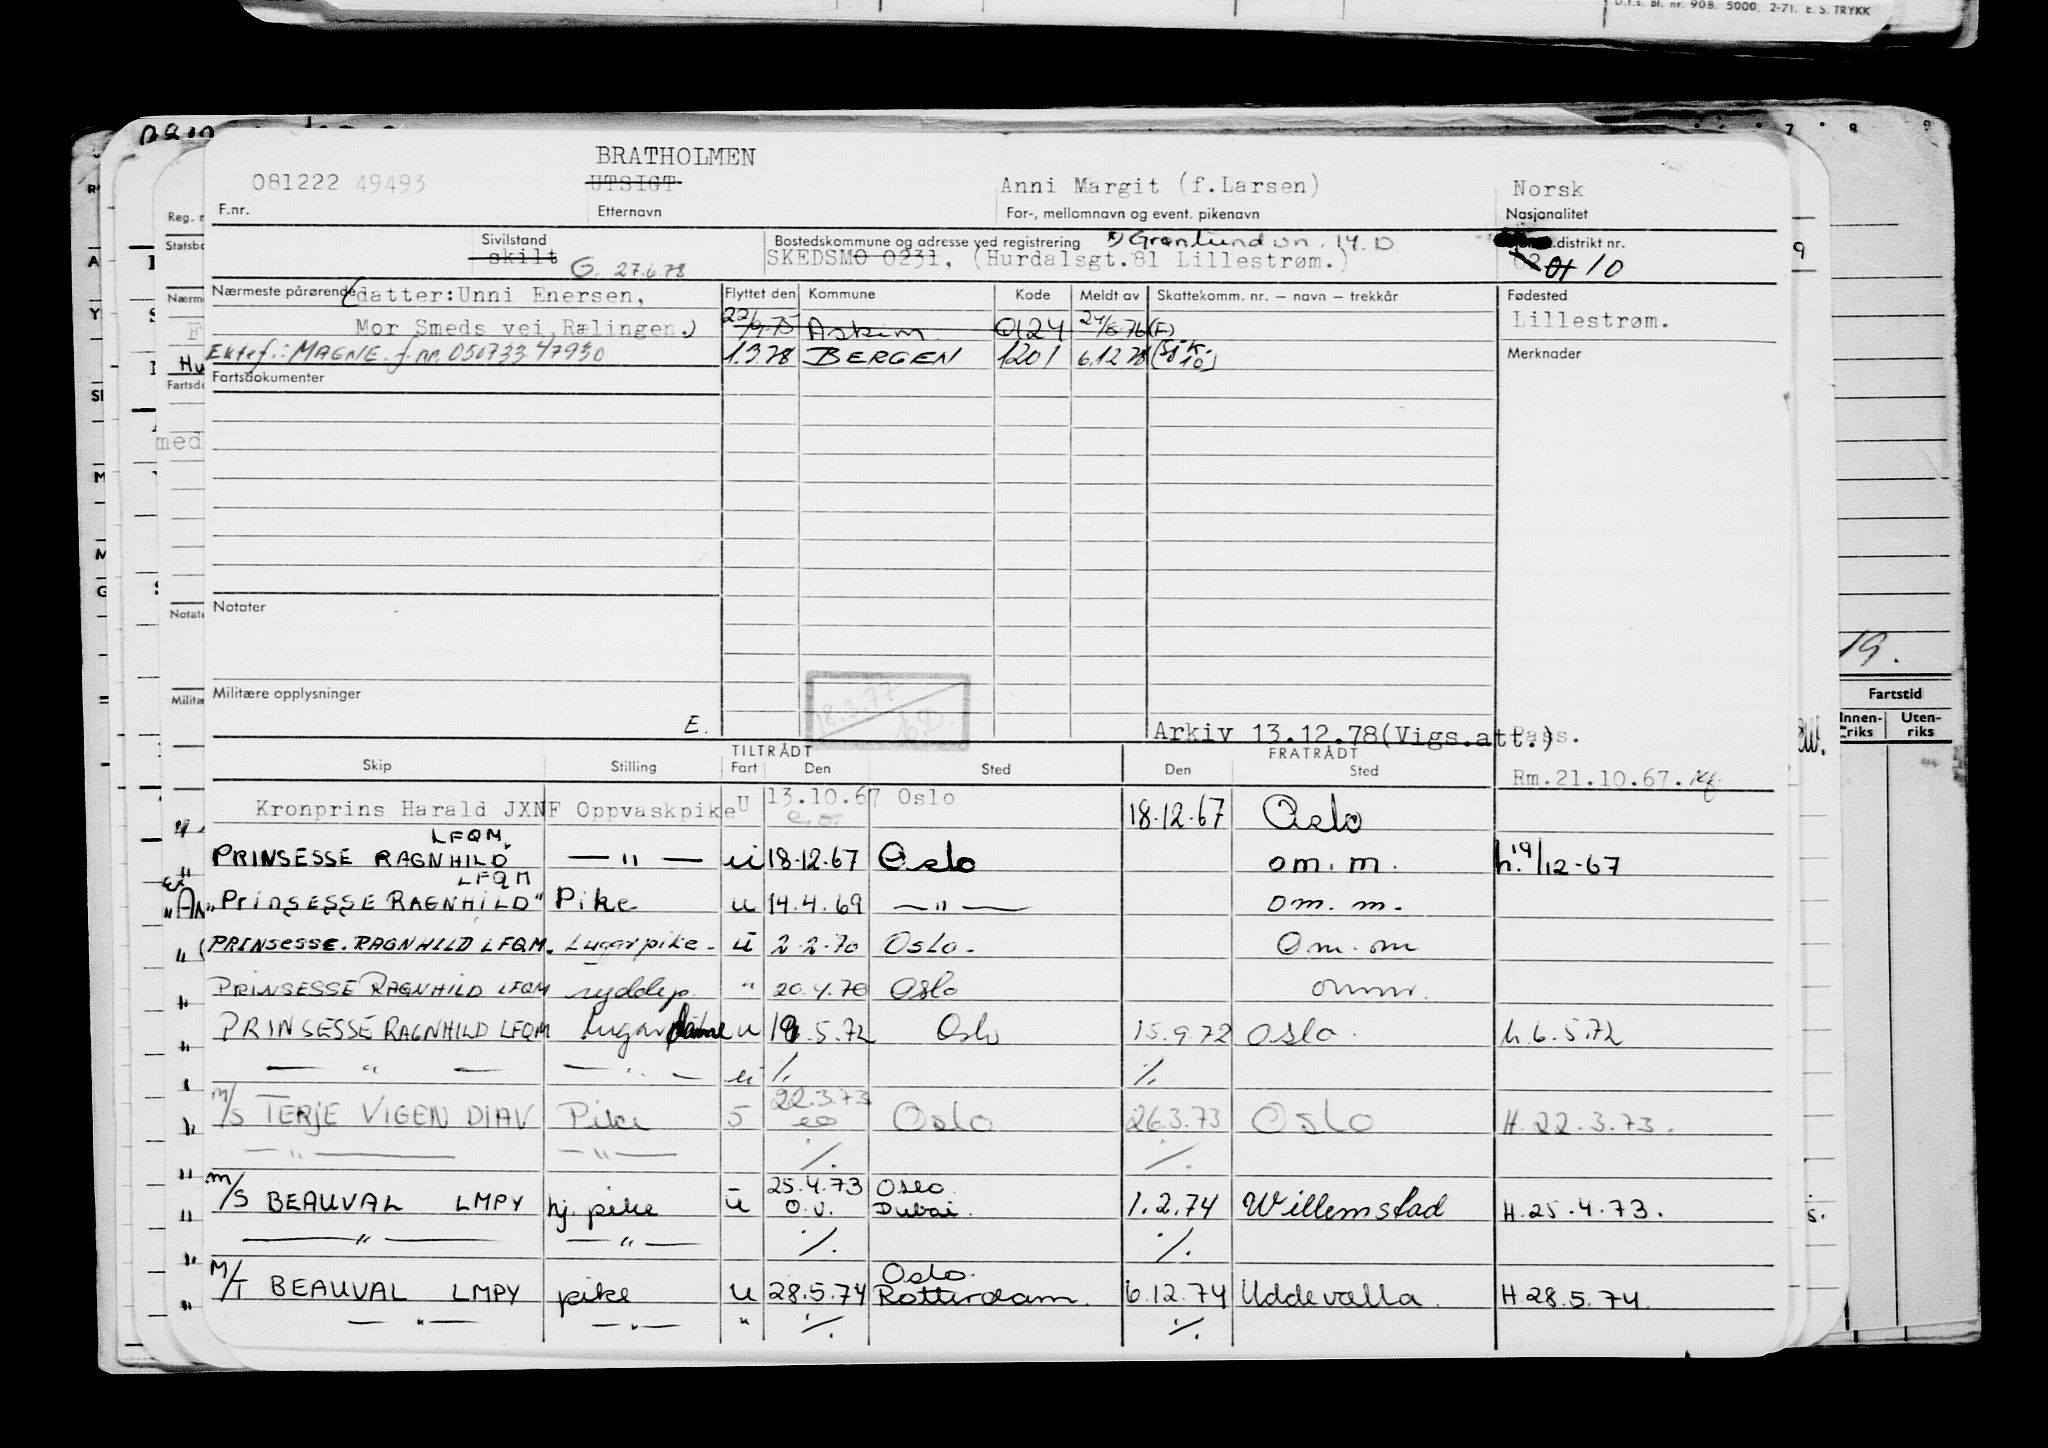 D.f.s. Bl. nr. 908. 5000. 2-71. E. S. TRYKK
BRATHOLMEN
081222 49493 UTSIGT Anni Margit (f.Larsen) Norsk
F.nr. Etternavn For-, mellomnavn og event. pikenavn Nasjonalitet
Sivilstand Bostedskommune og adresse ved registrering distrikt nr.
skilt G. 27.6.78 SKEDSMO 0231, (Hurdalsgt.81 Lillestrøm.) 10
Nærmeste pårørende (datter:Unni Enersen, Flyttet den Kommune Kode Meldt av Skattekomm. nr. – navn – trekkår Fødested
Mor Smeds vei,Rælingen.) Askim 0124 24/8-76 (E) Lillestrøm.
Ektef.: MAGNE f.nr. 050733 47930 1.3.78 BERGEN 1201 6.12.78 Merknader
Fartsdokumenter
Notater
Militære opplysninger
18.3.77
E.
Arkiv 13.12.78(Vigs.att.) Pass.
TILTRÅDT FRATRÅDT
Skip Stilling Fart Den Sted Den Sted
Rm.21.10.67.
Kronprins Harald JXNF Oppvaskpike U 13.10.67 Oslo 18.12.67 Oslo
LFQM.
PRINSESSE RAGNHILD — " — u 18-12.67 Oslo om.m. h.19/12-67
LFQM
"PRINSESSE RAGNHILD" Pike u 14.4.69 — " — om. m.
PRINSESSE. RAGNHILD LFQM. Lugarpike - u 2-2-70 Oslo. Om. m
PRINSESSE RAGNHILD LFQM ryddep " 20.4.70 Oslo omm.
PRINSESSE RAGNHILD LFQM u 5.72 Oslo 15.9.72 Oslo. h.6.5.72
— " — — " — u ./. ./.
M/S TERJE VIGEN DIAV Pike 5 22.3.73 eo Oslo 26.3.73 Oslo H.22.3.73.
— " — — " — ./. ./.
25.4.73 Oslo.
M/S BEAUVAL LMPY hj. pike u o.v. Dubai. 1.2.74 Willemstad H.25.4.73.
— " — — " — ./. ./.
Oslo.
M/T BEAUVAL LMPY pike u 28.5.74 Rotterdam. 6.12.74 Uddevalla. H.28.5.74.
— " — — " — " ./. ./.
Fartstid
Innen-riks Uten-riks
19.